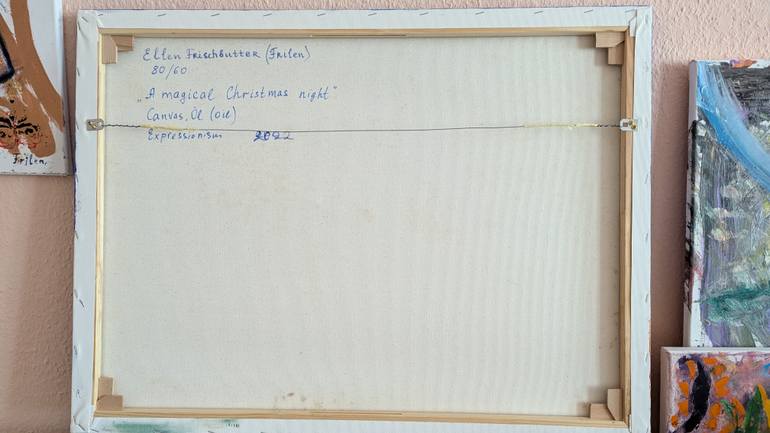 Ellen Frischbutter (Frilen)
80/60
„A magical Christmas night"
Canvas, Öl (oil)
Expressionism 2022
Frilen,